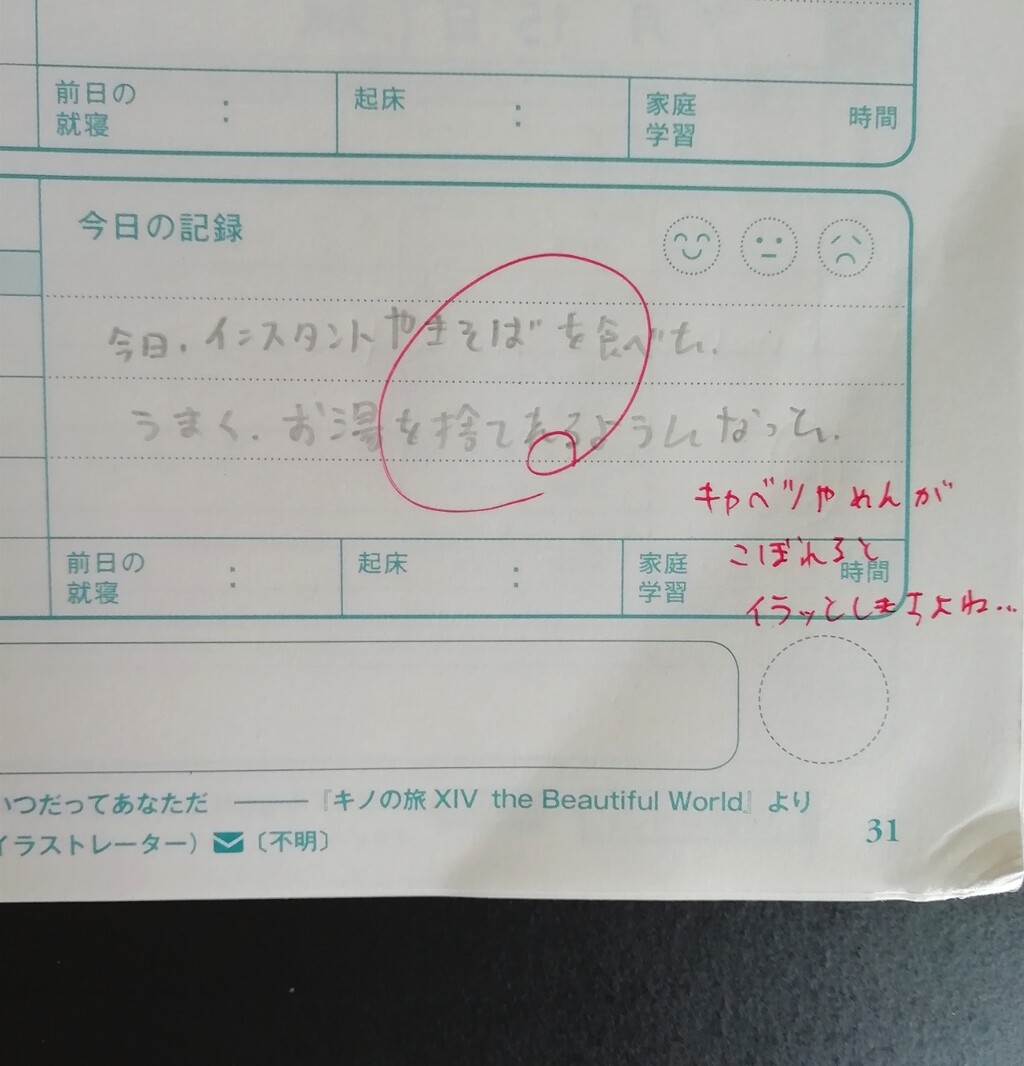 前日の
就寝
:
起床
:
家庭
学習
時間
今日の記録
今日、インスタントやきそばを食べた。
うまく、お湯を捨てれるようになった。
キャベツやめんが
こぼれると
イラッとしますよね…
前日の
就寝
:
起床
:
家庭
学習
時間
いつだってあなただ ——『キノの旅 XIV the Beautiful World』より
イラストレーター）〔不明〕
31